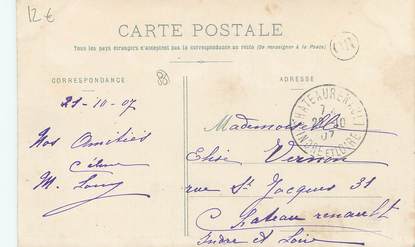 12 €
CARTE POSTALE
Tous les pays étrangers n'acceptent pas la correspondance au recto (Se renseigner à la Poste)
CORRESPONDANCE
ADRESSE
21-10-07
Nos Amitiés
Céline
M.
CHATEAURENAULT
INDRE ET LOIRE
07
Mademoiselle
Elise Vernon
rue St Jacques 31
Chateau renault
Indre et Loire